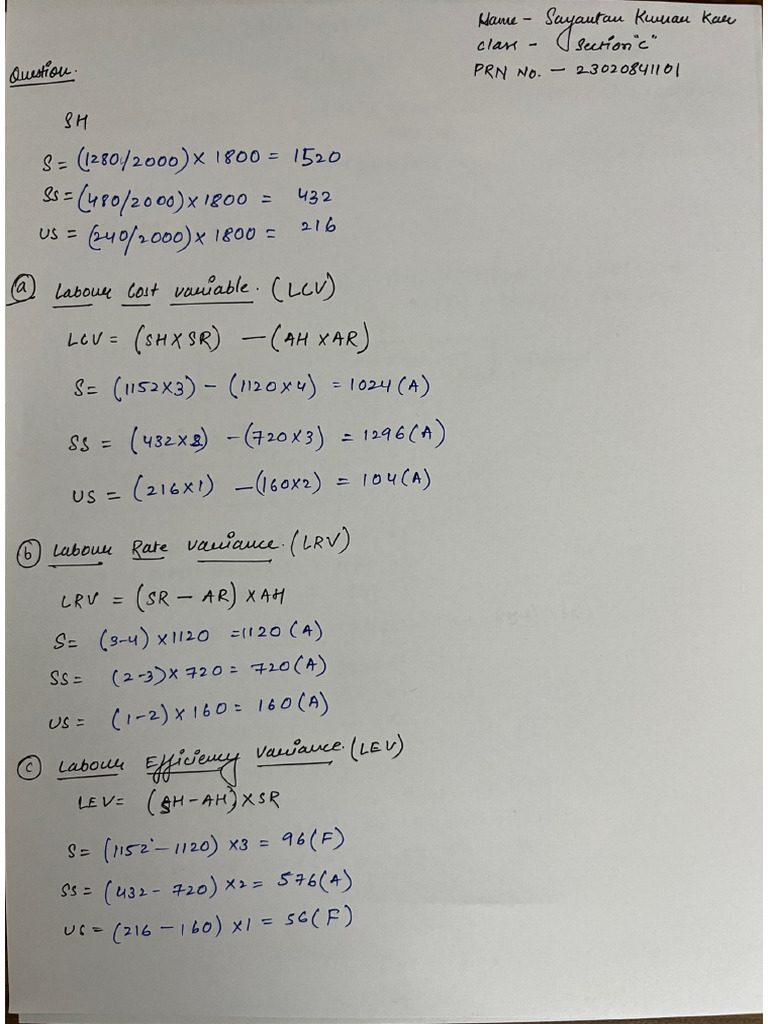 Name - Sayantan Kumar Kar
class - Section "C"
PRN No. - 23020841101
Question.
SH
S = (1280/2000) × 1800 = 1520
SS = (480/2000) × 1800 = 432
US = (240/2000) × 1800 = 216
(a) Labour Cost variable. (LCV)
LCV = (SH × SR) - (AH × AR)
S = (1152×3) - (1120×4) = 1024 (A)
SS = (432×2) - (720×3) = 1296 (A)
US = (216×1) - (160×2) = 104 (A)
(b) Labour Rate variance. (LRV)
LRV = (SR - AR) × AH
S = (3-4) × 1120 = 1120 (A)
SS = (2-3) × 720 = 720 (A)
US = (1-2) × 160 = 160 (A)
(c) Labour Efficiency Variance. (LEV)
LEV = (SH - AH) × SR
S = (1152 - 1120) × 3 = 96 (F)
SS = (432 - 720) × 2 = 576 (A)
US = (216 - 160) × 1 = 56 (F)